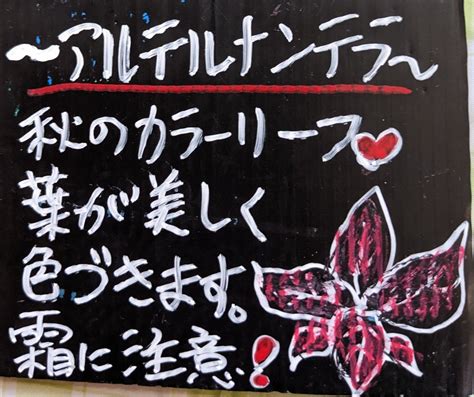 〜アルテルナンテラ〜
秋のカラーリーフ♥
葉が美しく
色づきます。
霜に注意!